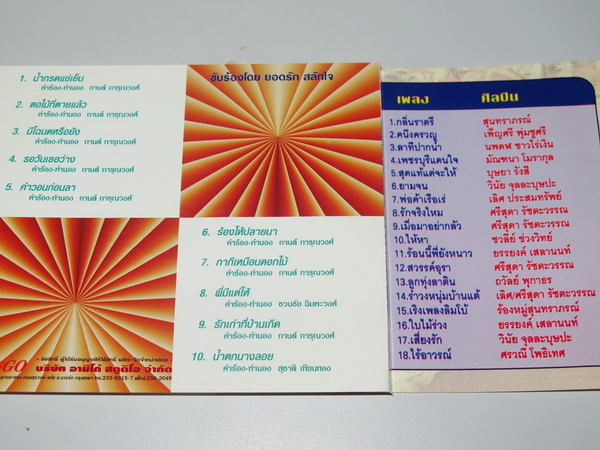 ขับร้องโดย ยอดรัก สลักใจ
1. น้ำกรดแช่เย็น
คำร้อง-ทำนอง กานต์ การุณวงศ์
2. ตอไม้ที่ตายแล้ว
คำร้อง-ทำนอง กานต์ การุณวงศ์
3. มีโฉนดหรือยัง
คำร้อง-ทำนอง กานต์ การุณวงศ์
4. รอวันเธอว่าง
คำร้อง-ทำนอง กานต์ การุณวงศ์
5. คำวอนก่อนลา
คำร้อง-ทำนอง กานต์ การุณวงศ์
6. ร้องไห้ปลายนา
คำร้อง-ทำนอง กานต์ การุณวงศ์
7. กากีเหมือนดอกไม้
คำร้อง-ทำนอง กานต์ การุณวงศ์
8. พี่มีแต่ให้
คำร้อง-ทำนอง ชวนชัย ฉิมพะวงศ์
9. รักเก่าที่บ้านเกิด
คำร้อง-ทำนอง กานต์ การุณวงศ์
10. น้ำตกนางลอย
คำร้อง-ทำนอง สุชาติ เทียนทอง
GO
บริษัท อามิโก้ สตูดิโอ จำกัด
เพลง ศิลปิน
1.กลิ่นราตรี สุนทราภรณ์
2.คนึงครวญ เพ็ญศรี พุ่มชูศรี
3.ลาทีปากน้ำ นพดฬ ชาวไร่เงิน
4.เพชรบุรีแดนใจ มัณฑนา โมรากุล
5.สุดแท้แต่จะให้ บุษยา รังสี
6.ยามจน วินัย จุลละบุษปะ
7.พ่อค้าเรือเร่ เลิศ ประสมทรัพย์
8.รักจริงไหม ศรีสุดา รัชตะวรรณ
9.เมื่อมาอย่ากลัว ศรีสุดา รัชตะวรรณ
10.ให้หา ชวลีย์ ช่วงวิทย์
11.ร้อนนี้พี่ยังหนาว ยรรยงค์ เสลานนท์
12.สวรรค์อุรา ศรีสุดา รัชตะวรรณ
13.ลูกทุ่งลาติน ถวัลย์ พุกาธร
14.ราวงหนุ่มบ้านแต้ เลิศ/ศรีสุดา รัชตะวรรณ
15.เริงเพลงลิมโบ้ ร้องหมู่สุนทราภรณ์
16.ใบไม้ร่วง ยรรยงค์ เสลานนท์
17.เสี่ยงรัก วินัย จุลละบุษปะ
18.ไร้อาวรณ์ ศรวณี โพธิเทศ